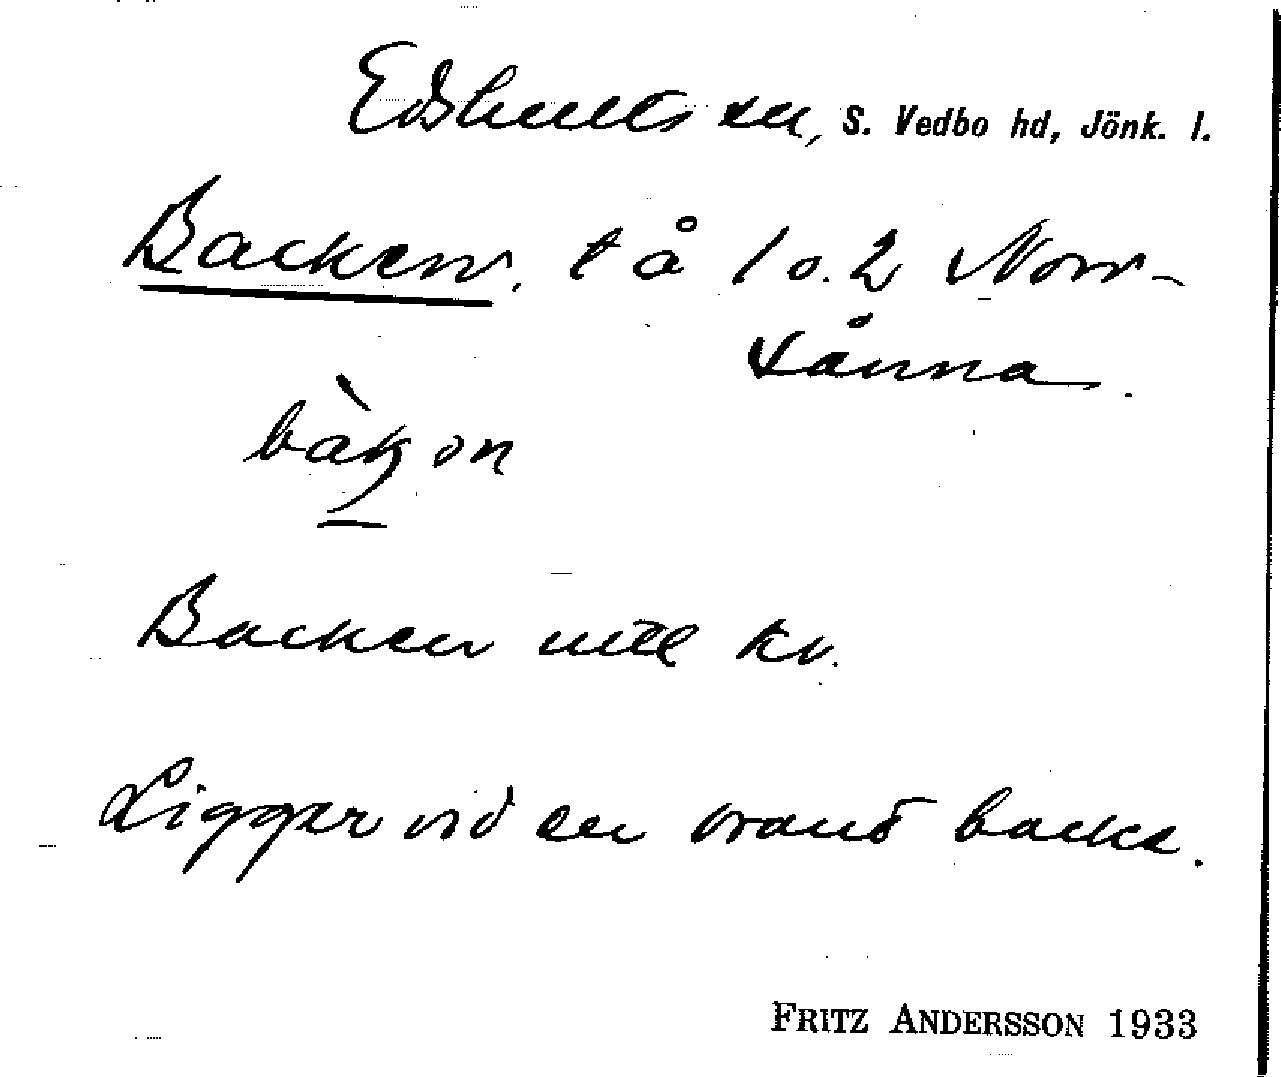 Edshults sn, S. Vedbo hd, Jönk. l.
Backen, t å 1 o. 2 Norr-
sånna.
bàkon
Backen nill kv.
Ligger vid en brant backe.
FRITZ ANDERSSON 1933